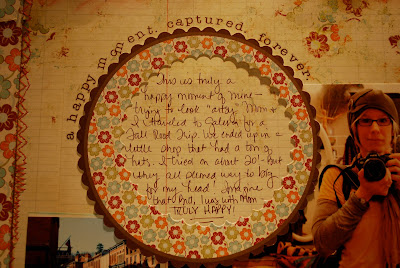 a happy moment, captured, forever.
This is truly a
happy moment of mine -
trying to look "artsy". Mom &
I traveled to Galena on a
Fall Road Trip. We ended up in a
little shop that had a ton of
hats. I tried on about 20! - but
they all seemed way to big
for my head! Imagine
that! And, I was with Mom
TRULY HAPPY!